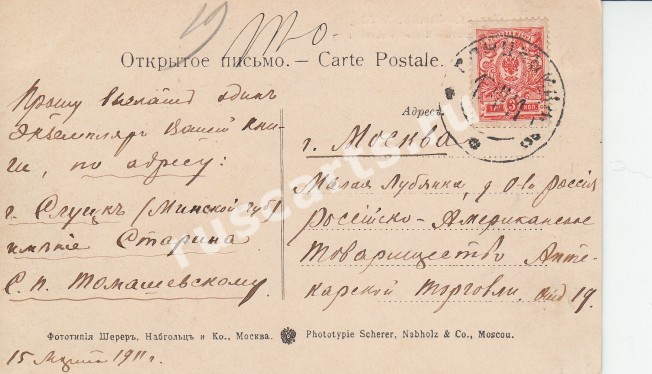 Открытое письмо. — Carte Postale.
Адресъ
Прошу выслать одинъ
экземпляръ Вашей кни-
ги, по адресу:
г. Слуцкъ (Минской губ)
имѣніе Старина
С. П. Томашевскому.
г. Москва
Малая Лубянка, д. О-во Россія
Россійско-Американское
Товарищество Апте-
карской торговли.
Фототипія Шереръ, Набгольцъ и Ко., Москва. Phototypie Scherer, Nabholz & Co., Moscou.
15 Марта 1911 г.
3 КОП.
ruscarts.ru